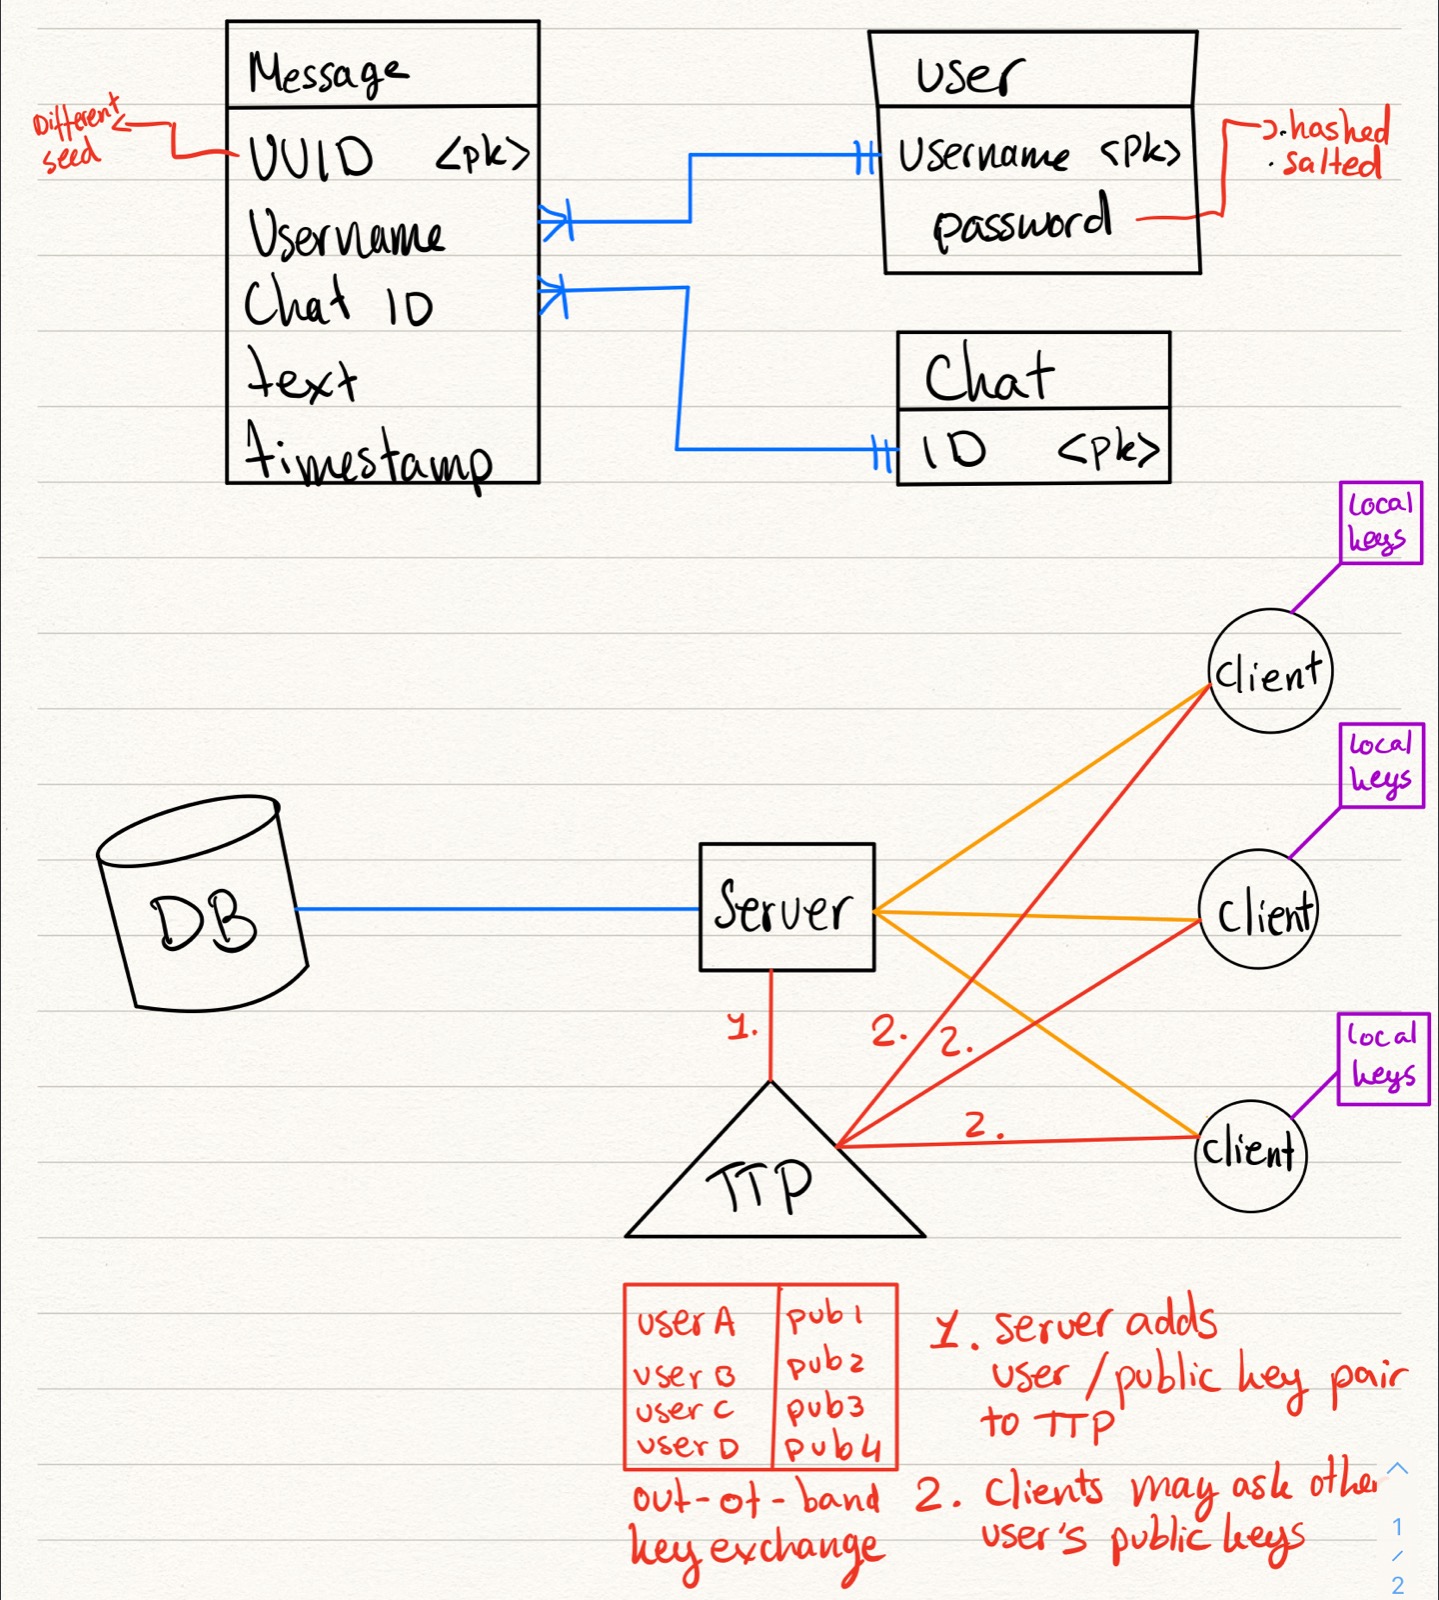 Message
Different
seed
UUID <pk>
Username
Chat ID
text
timestamp
User
Username <pk>
password
· hashed
· salted
Chat
ID <pk>
local
keys
Client
local
keys
Client
local
keys
Client
DB
Server
1.
2.
2.
2.
TTP
user A pub 1
user B pub 2
user C pub 3
user D pub 4
out-of-band
key exchange
1. server adds
user / public key pair
to TTP
2. Clients may ask other
user's public keys
1
/
2